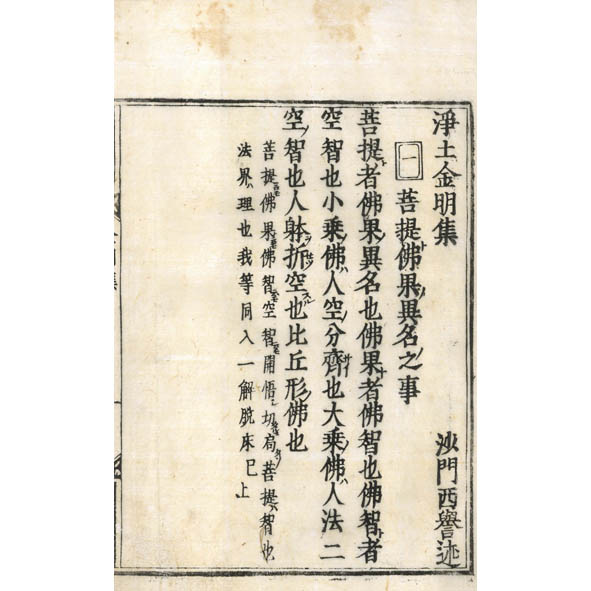 淨土金明集 沙門西譽述
一 菩提ト佛果ノ異名之事
菩提ト者佛果ノ異名也佛果ト者佛智也佛智ト者
空智也小乘ノ佛ハ人空ノ分齊也大乘ノ佛ハ人法二
空ノ智也人躰ヲ折空也比丘形ノ佛也
菩提佛果佛智空智開悟切局菩提智也
法界ハ理也我等同入一解脱床已上